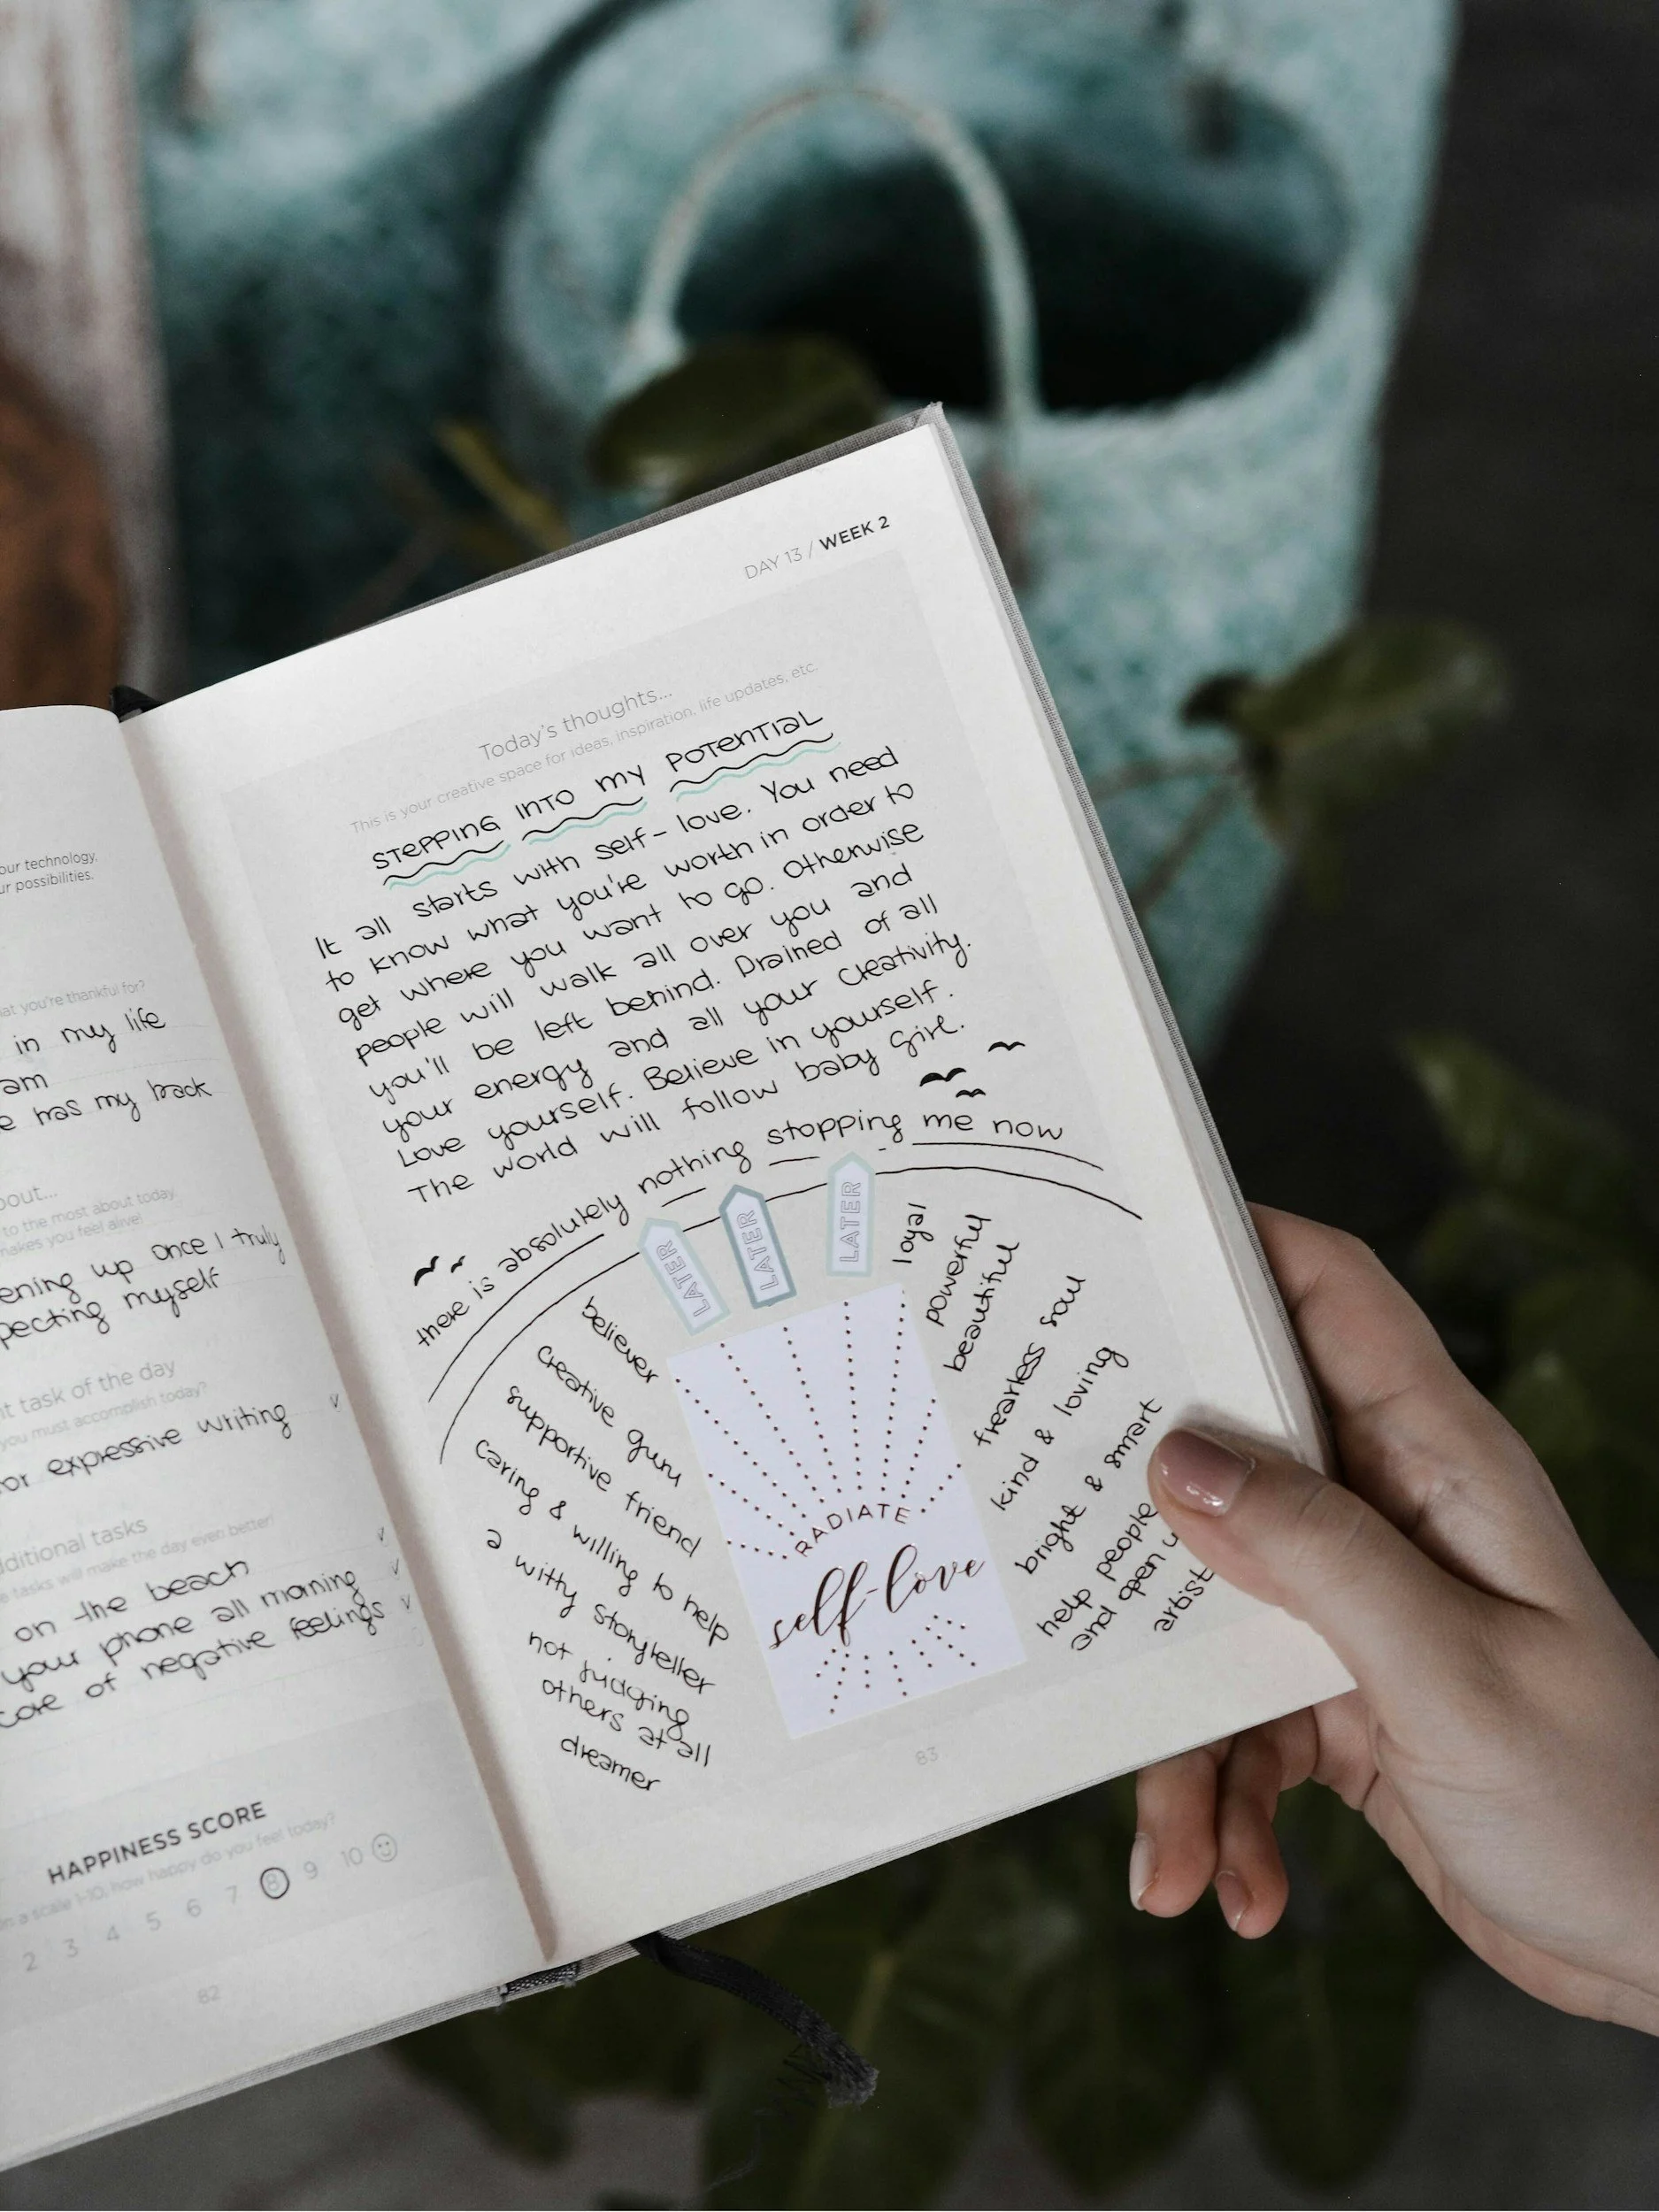 our technology.
ur possibilities.
at you're thankful for?
in my life
am
e has my back
bout...
to the most about today,
makes you feel alive!
ening up once I truly
pecting myself
nt task of the day
you must accomplish today?
or expressive writing
dditional tasks
e tasks will make the day even better!
on the beach
your phone all morning
core of negative feelings
HAPPINESS SCORE
on a scale 1-10, how happy do you feel today?
2 3 4 5 6 7 8 9 10
82
DAY 13 / WEEK 2
Today's thoughts...
This is your creative space for ideas, inspiration, life updates, etc.
STEPPING INTO MY POTENTIAL
It all starts with self-love. You need
to know what you're worth in order to
get where you want to go. Otherwise
people will walk all over you and
you'll be left behind. Drained of all
your energy and all your creativity.
Love yourself. Believe in yourself.
The world will follow baby girl.
there is absolutely nothing stopping me now
LATER
LATER
LATER
believer
creative guru
supportive friend
caring & willing to help
a witty storyteller
not judging
others at all
dreamer
RADIATE
self-love
loyal
powerful
beautiful
fearless soul
kind & loving
bright & smart
help people
and open u
artist
83